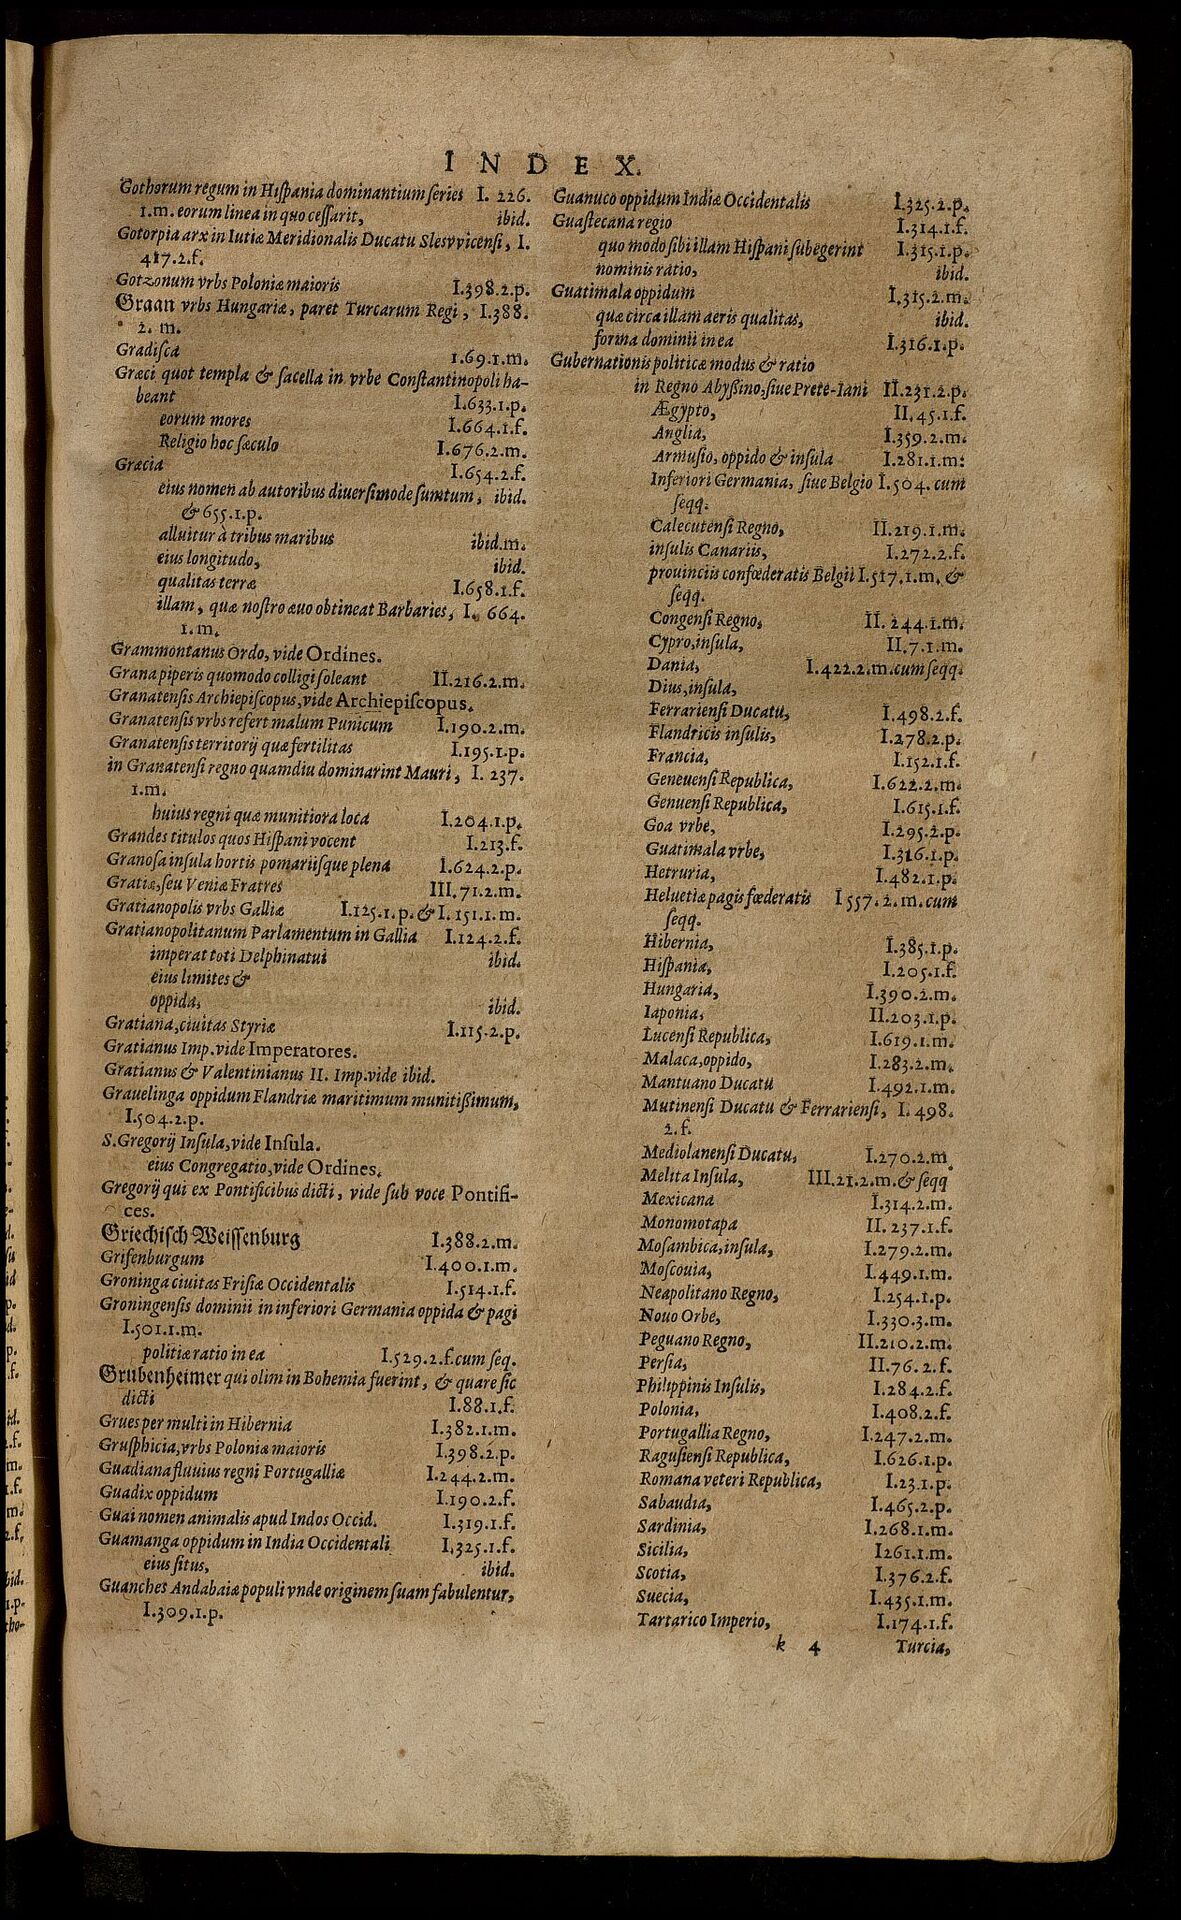 INDEX.
Gothorum regum in Hiſpania dominantium ſeries I. 226.
1.m. eorum linea in quo ceſſarit, ibid.
Gotorpia arx in Iutiæ Meridionalis Ducatu Slesvvicenſi, I.
417.2.f.
Gotzonum vrbs Poloniæ maioris I.398.2.p.
Graan vrbs Hungariæ, paret Turcarum Regi, I.388.
2. m.
Gradiſca 1.69.1.m.
Græci quot templa & ſacella in vrbe Conſtantinopoli ha-
beant I.633.1.p.
eorum mores I.664.1.f.
Religio hoc ſæculo I.676.2.m.
Græcia I.654.2.f.
eius nomen ab autoribus diuerſimode ſumtum, ibid.
& 655.1.p.
alluitur à tribus maribus ibid.m.
eius longitudo, ibid.
qualitas terræ I.658.1.f.
illam, quæ noſtro æuo obtineat Barbaries, I. 664.
1.m.
Grammontanus Ordo, vide Ordines.
Grana piperis quomodo colligi ſoleant II.216.2.m.
Granatenſis Archiepiſcopus, vide Archiepiſcopus.
Granatenſis vrbs refert malum Punicum I.190.2.m.
Granatenſis territorij quæ fertilitas I.195.1.p.
in Granatenſi regno quamdiu dominarint Mauri, I. 237.
1.m.
huius regni quæ munitiora loca I.204.1.p.
Grandes titulos quos Hiſpani vocent I.213.f.
Granoſa inſula hortis pomariiſque plena I.624.2.p.
Gratiæ, ſeu Veniæ Fratres III.71.2.m.
Gratianopolis vrbs Galliæ I.125.1.p. & I.151.1.m.
Gratianopolitanum Parlamentum in Gallia I.124.2.f.
imperat toti Delphinatui ibid.
eius limites &
oppida, ibid.
Gratiana, ciuitas Styriæ I.115.2.p.
Gratianus Imp. vide Imperatores.
Gratianus & Valentinianus II. Imp. vide ibid.
Grauelinga oppidum Flandriæ maritimum munitißimum,
I.504.2.p.
S. Gregorij Inſula, vide Inſula.
eius Congregatio, vide Ordines.
Gregorij qui ex Pontificibus dicti, vide ſub voce Pontifi-
ces.
Griechiſch Weiſſenburg I.388.2.m.
Grifenburgum I.400.1.m.
Groninga ciuitas Friſiæ Occidentalis I.514.1.f.
Groningenſis dominii in inferiori Germania oppida & pagi
I.501.1.m.
politiæ ratio in ea I.529.2.f.cum ſeq.
Grubenheimer qui olim in Bohemia fuerint, & quare ſic
dicti I.88.1.f.
Grues per multi in Hibernia I.382.1.m.
Gruſphicia, vrbs Poloniæ maioris I.398.2.p.
Guadiana fluuius regni Portugalliæ I.244.2.m.
Guadix oppidum I.190.2.f.
Guai nomen animalis apud Indos Occid. I.319.1.f.
Guamanga oppidum in India Occidentali I.325.1.f.
eius ſitus, ibid.
Guanches Andabaiæ populi vnde originem ſuam fabulentur,
I.309.1.p.
Guanuco oppidum Indiæ Occidentalis I.325.2.p.
Guaſtecana regio I.314.1.f.
quo modo ſibi illam Hiſpani ſubegerint I.315.1.p.
nominis ratio, ibid.
Guatimala oppidum I.315.2.m.
quæ circa illam aeris qualitas, ibid.
forma dominii in ea I.316.1.p.
Gubernationis politicæ modus & ratio
in Regno Abyßino, ſiue Prete-Iani II.231.2.p.
Ægypto, II.45.1.f.
Anglia, I.359.2.m.
Armuſio, oppido & inſula I.281.1.m:
Inferiori Germania, ſiue Belgio I.504. cum
ſeqq.
Calecutenſi Regno, II.219.1.m.
inſulis Canariis, I.272.2.f.
prouinciis confœderatis Belgii I.517.1.m. &
ſeqq.
Congenſi Regno, II. 244.1.m.
Cypro, inſula, II.7.1.m.
Dania, I.422.2.m.cum ſeqq.
Dius, inſula,
Ferrarienſi Ducatu, I.498.2.f.
Flandricis inſulis, I.278.2.p.
Francia, I.152.1.f.
Geneuenſi Republica, I.622.2.m.
Genuenſi Republica, I.615.1.f.
Goa vrbe, I.295.2.p.
Guatimala vrbe, I.316.1.p.
Hetruria, I.482.1.p.
Heluetiæ pagis fœderatis I 557.2.m.cum
ſeqq.
Hibernia, I.385.1.p.
Hiſpania, I.205.1.f.
Hungaria, I.390.2.m.
Iaponia, II.203.1.p.
Lucenſi Republica, I.619.1.m.
Malaca, oppido, I.283.2.m.
Mantuano Ducatu I.492.1.m.
Mutinenſi Ducatu & Ferrarienſi, I. 498.
2.f.
Mediolanenſi Ducatu, I.270.2.m.
Melita Inſula, III.21.2.m.& ſeqq
Mexicana I.314.2.m.
Monomotapa II. 237.1.f.
Moſambica, inſula, I.279.2.m.
Moſcouia, I.449.1.m.
Neapolitano Regno, I.254.1.p.
Nouo Orbe, I.330.3.m.
Peguano Regno, II.210.2.m.
Perſia, II.76.2.f.
Philippinis Inſulis, I.284.2.f.
Polonia, I.408.2.f.
Portugallia Regno, I.247.2.m.
Raguſienſi Republica, I.626.1.p.
Romana veteri Republica, I.23.1.p.
Sabaudia, I.465.2.p.
Sardinia, I.268.1.m.
Sicilia, I261.1.m.
Scotia, I.376.2.f.
Suecia, I.435.1.m.
Tartarico Imperio, I.174.1.f.
k 4 Turcia,